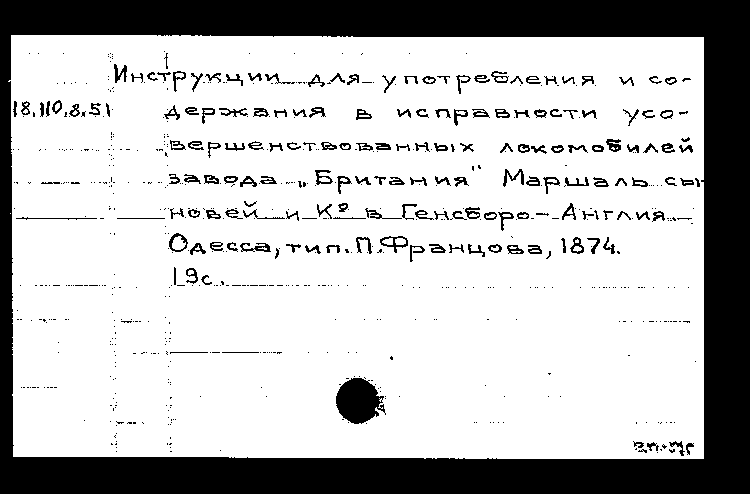 Инструкции для употребления и со-
18.110.8.51 держания в исправности усо-
вершенствованных локомобилей
завода „Британия" Маршаль сы-
новей и Кº в Генсборо - Англия.
Одесса, тип. П. Францова, 1874.
19с.